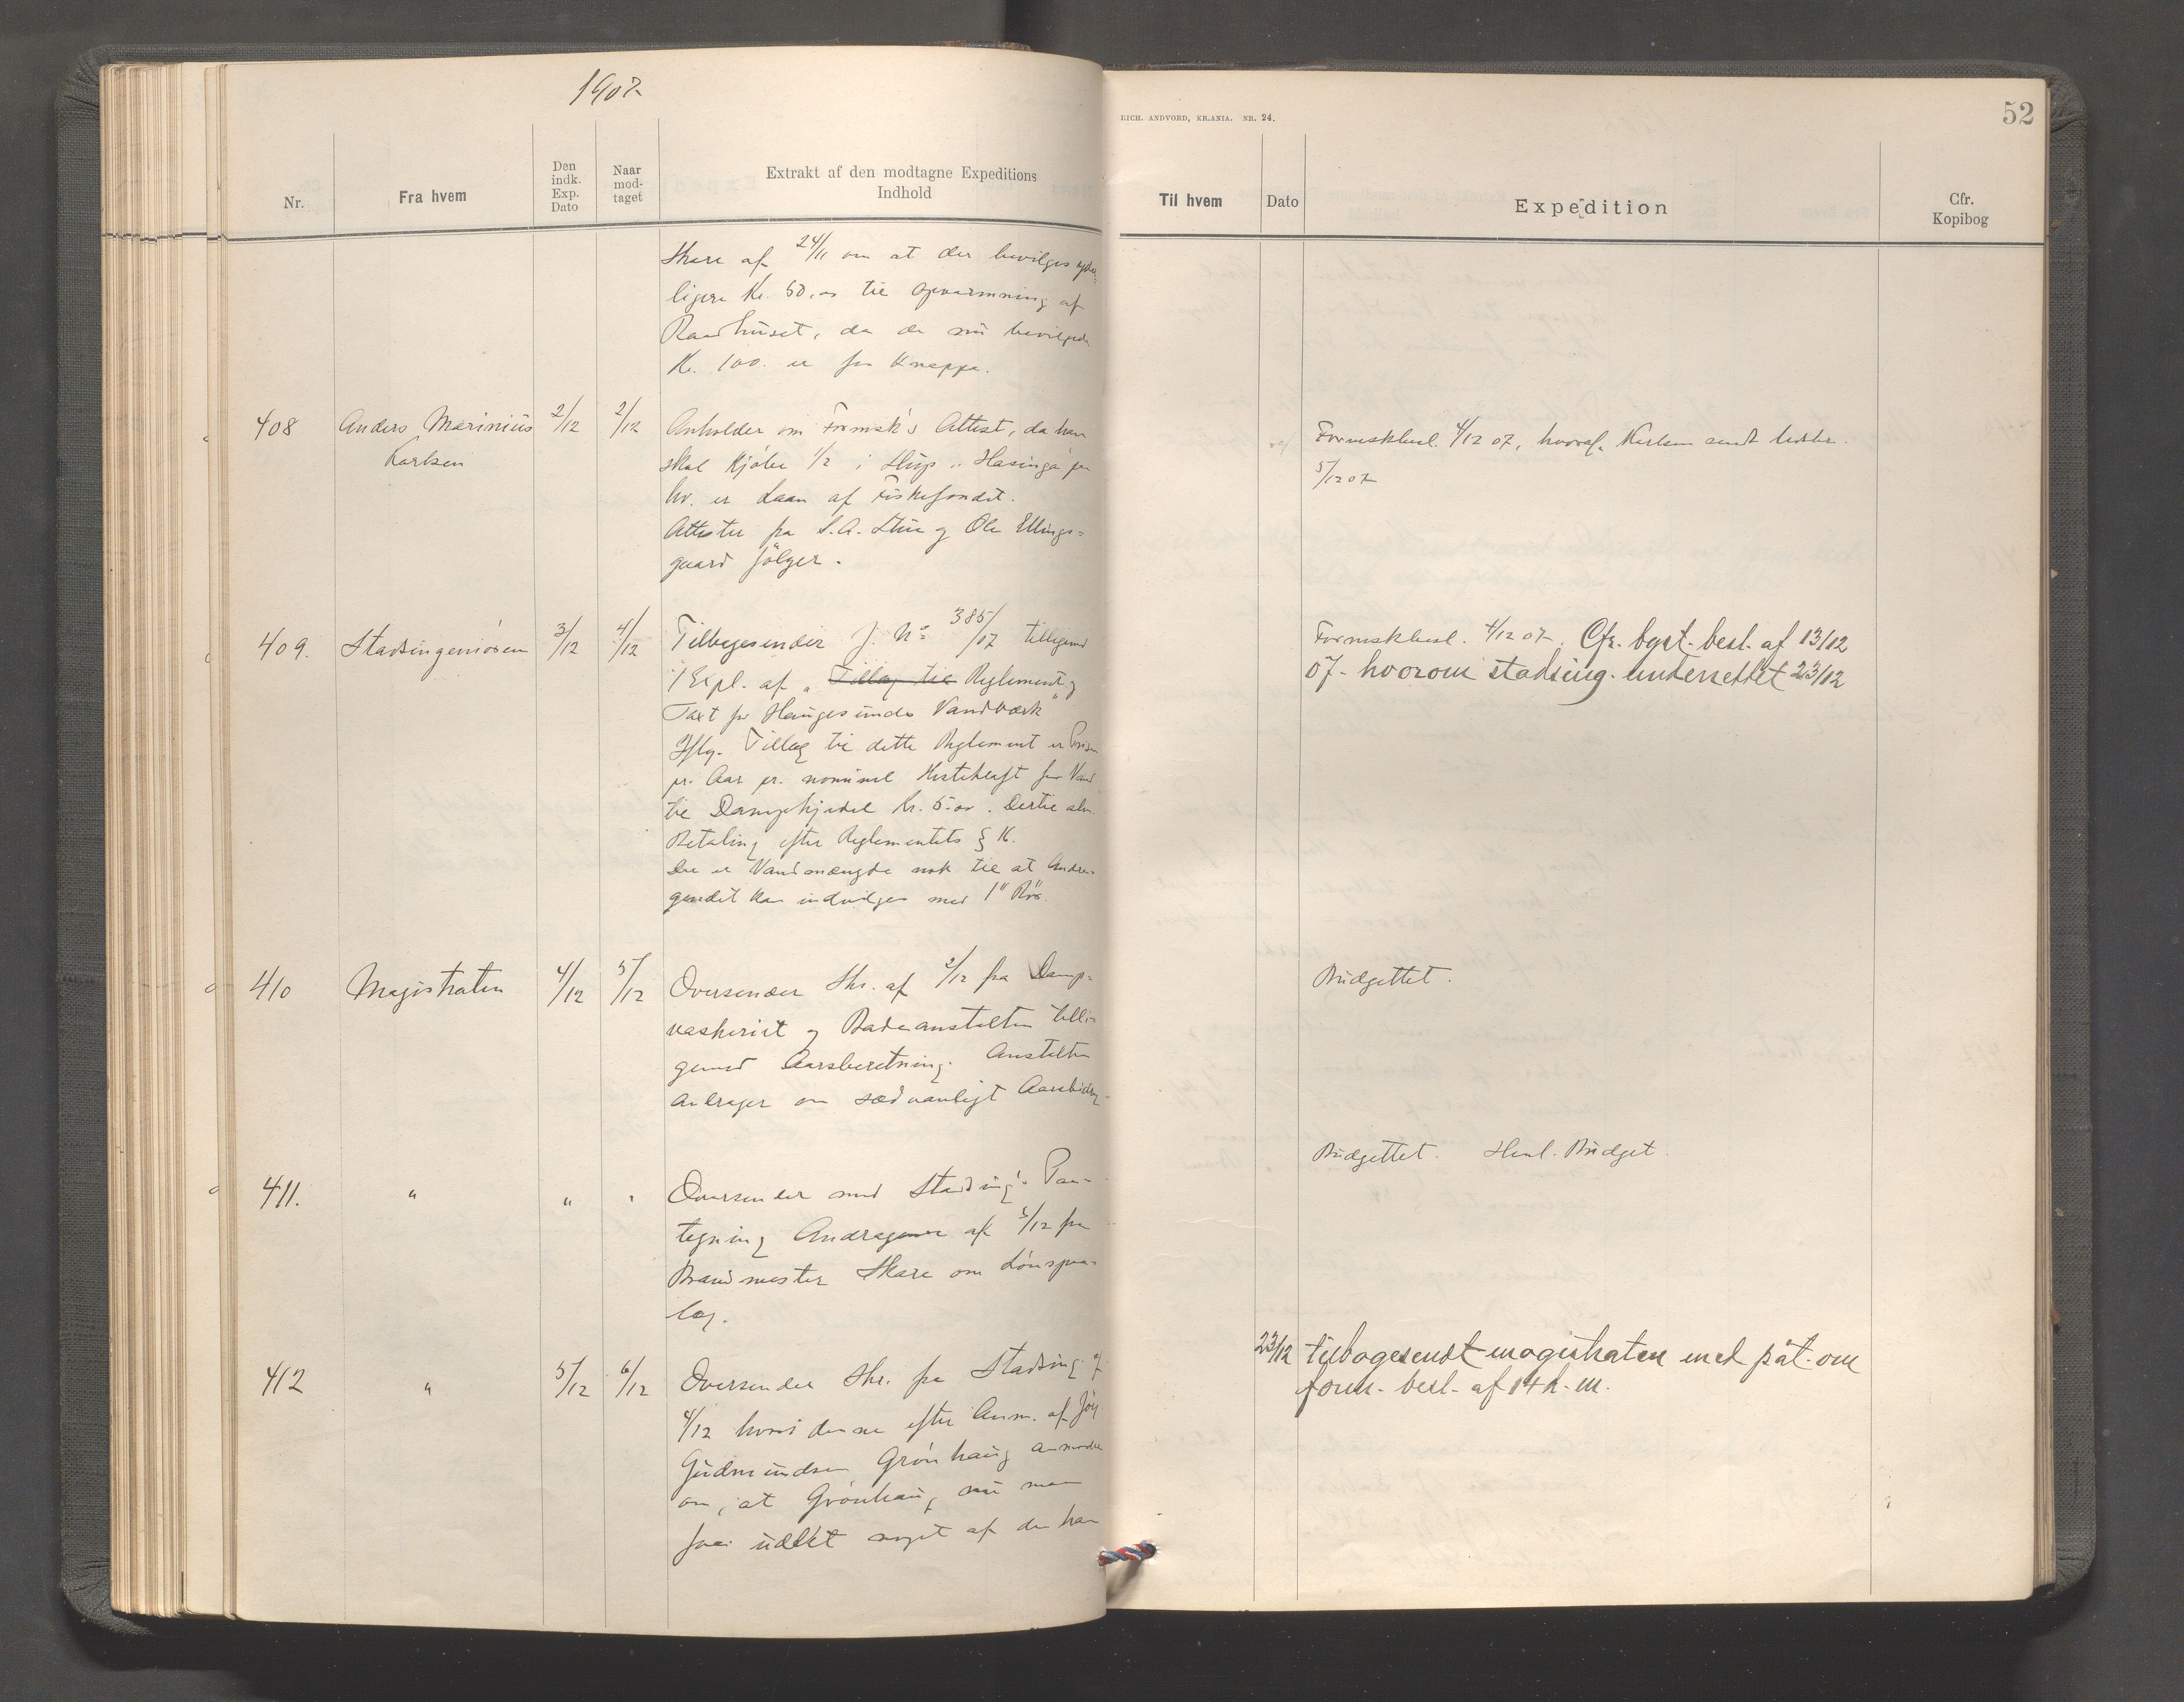 1907
Nr.
Fra hvem
Den indk. Exp. Dato
Naar mod-taget
Extrakt af den modtagne Expeditions Indhold
Skare af 24/11 om at der bevilges yder-
ligere Kr. 50,00 til Opvarmning af
Raadhuset, da de nu bevilgede
Kr. 100. er for knappe.
408 Anders Marinius Karlsen 2/12 2/12 Anholder om Formsk's Attest, da han
skal kjøbe 1/2 i Slup "Hasinga" paa
hv. er Laan af Fiskefondet.
Attester fra S.A. og Ole Ellings-
gaard følger.
409. Stadsingeniøren 3/12 4/12 Tilbagesender J. No 385/07 tilligemed
1 Expl. af "Tillæg til Reglement og
Taxt for Haugesunds Vandværk"
Iflg. Tillæg til dette Reglement er Prisen
pr. Aar pr. nominel Hestekraft for Vand
til Dampkjedel Kr. 5.00. Dertil alm.
Betaling efter Reglementets § 16.
Der er Vandmængde nok til at Andra-
gendet kan indvilges med 1" Rør.
410 Magistraten 4/12 5/12 Oversender Skr. af 2/12 fra Damp-
vaskeriet og Badeanstalten tilli-
gemed Aarsberetning. Anstalten
andrager om sædvanligt Aarsbidrag.
411. " " " Oversender med Stadsing's Paa-
tegning Andragende af 3/12 fra
Brandmester Skare om Lønspaa-
læg.
412 " 5/12 6/12 Oversender Skr. fra Stadsing. af
4/12 hvori denne efter Anm. af
Gudmundsen Grønhaug anmoder
om, at Grønhaug nu maa
faa udbet. noget af det han
RICH. ANDVORD, KR.ANIA. NR. 24.
52
Til hvem
Dato
Expedition
Cfr. Kopibog
Formskbesl. 4/12 07, hvoraf Karlsen sendt
5/12 07
Formskbesl. 4/12 07. Cfr. byst. besl. af 13/12
07 - hvorom stadsing. underrettet 23/12
Budgettet.
Budgettet. Henl. Budget.
23/12 tilbagesendt magistraten med påt. om
form. besl. af 14 h. m.